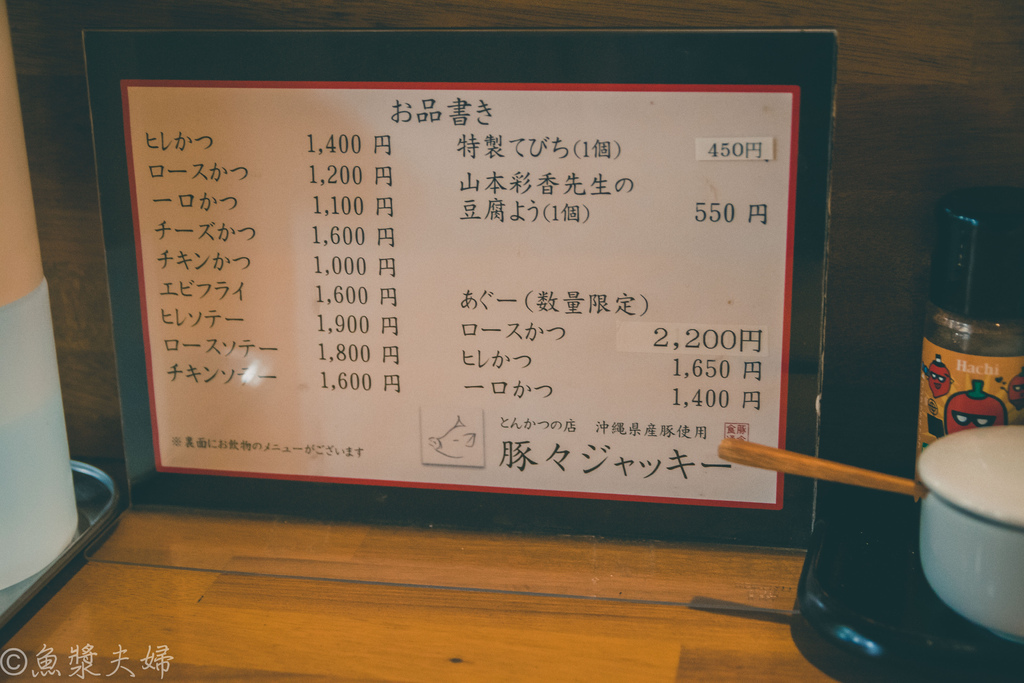 お品書き
ヒレかつ 1,400 円
ロースかつ 1,200 円
一口かつ 1,100 円
チーズかつ 1,600 円
チキンかつ 1,000 円
エビフライ 1,600 円
ヒレソテー 1,900 円
ロースソテー 1,800 円
チキンソテー 1,600 円
※裏面にお飲物のメニューがございます
特製てびち(1個) 450円
山本彩香先生の
豆腐よう(1個) 550 円
あぐー(数量限定)
ロースかつ 2,200円
ヒレかつ 1,650 円
一口かつ 1,400 円
とんかつの店 沖縄県産豚使用
豚々ジャッキー
Hachi
©魚漿夫婦